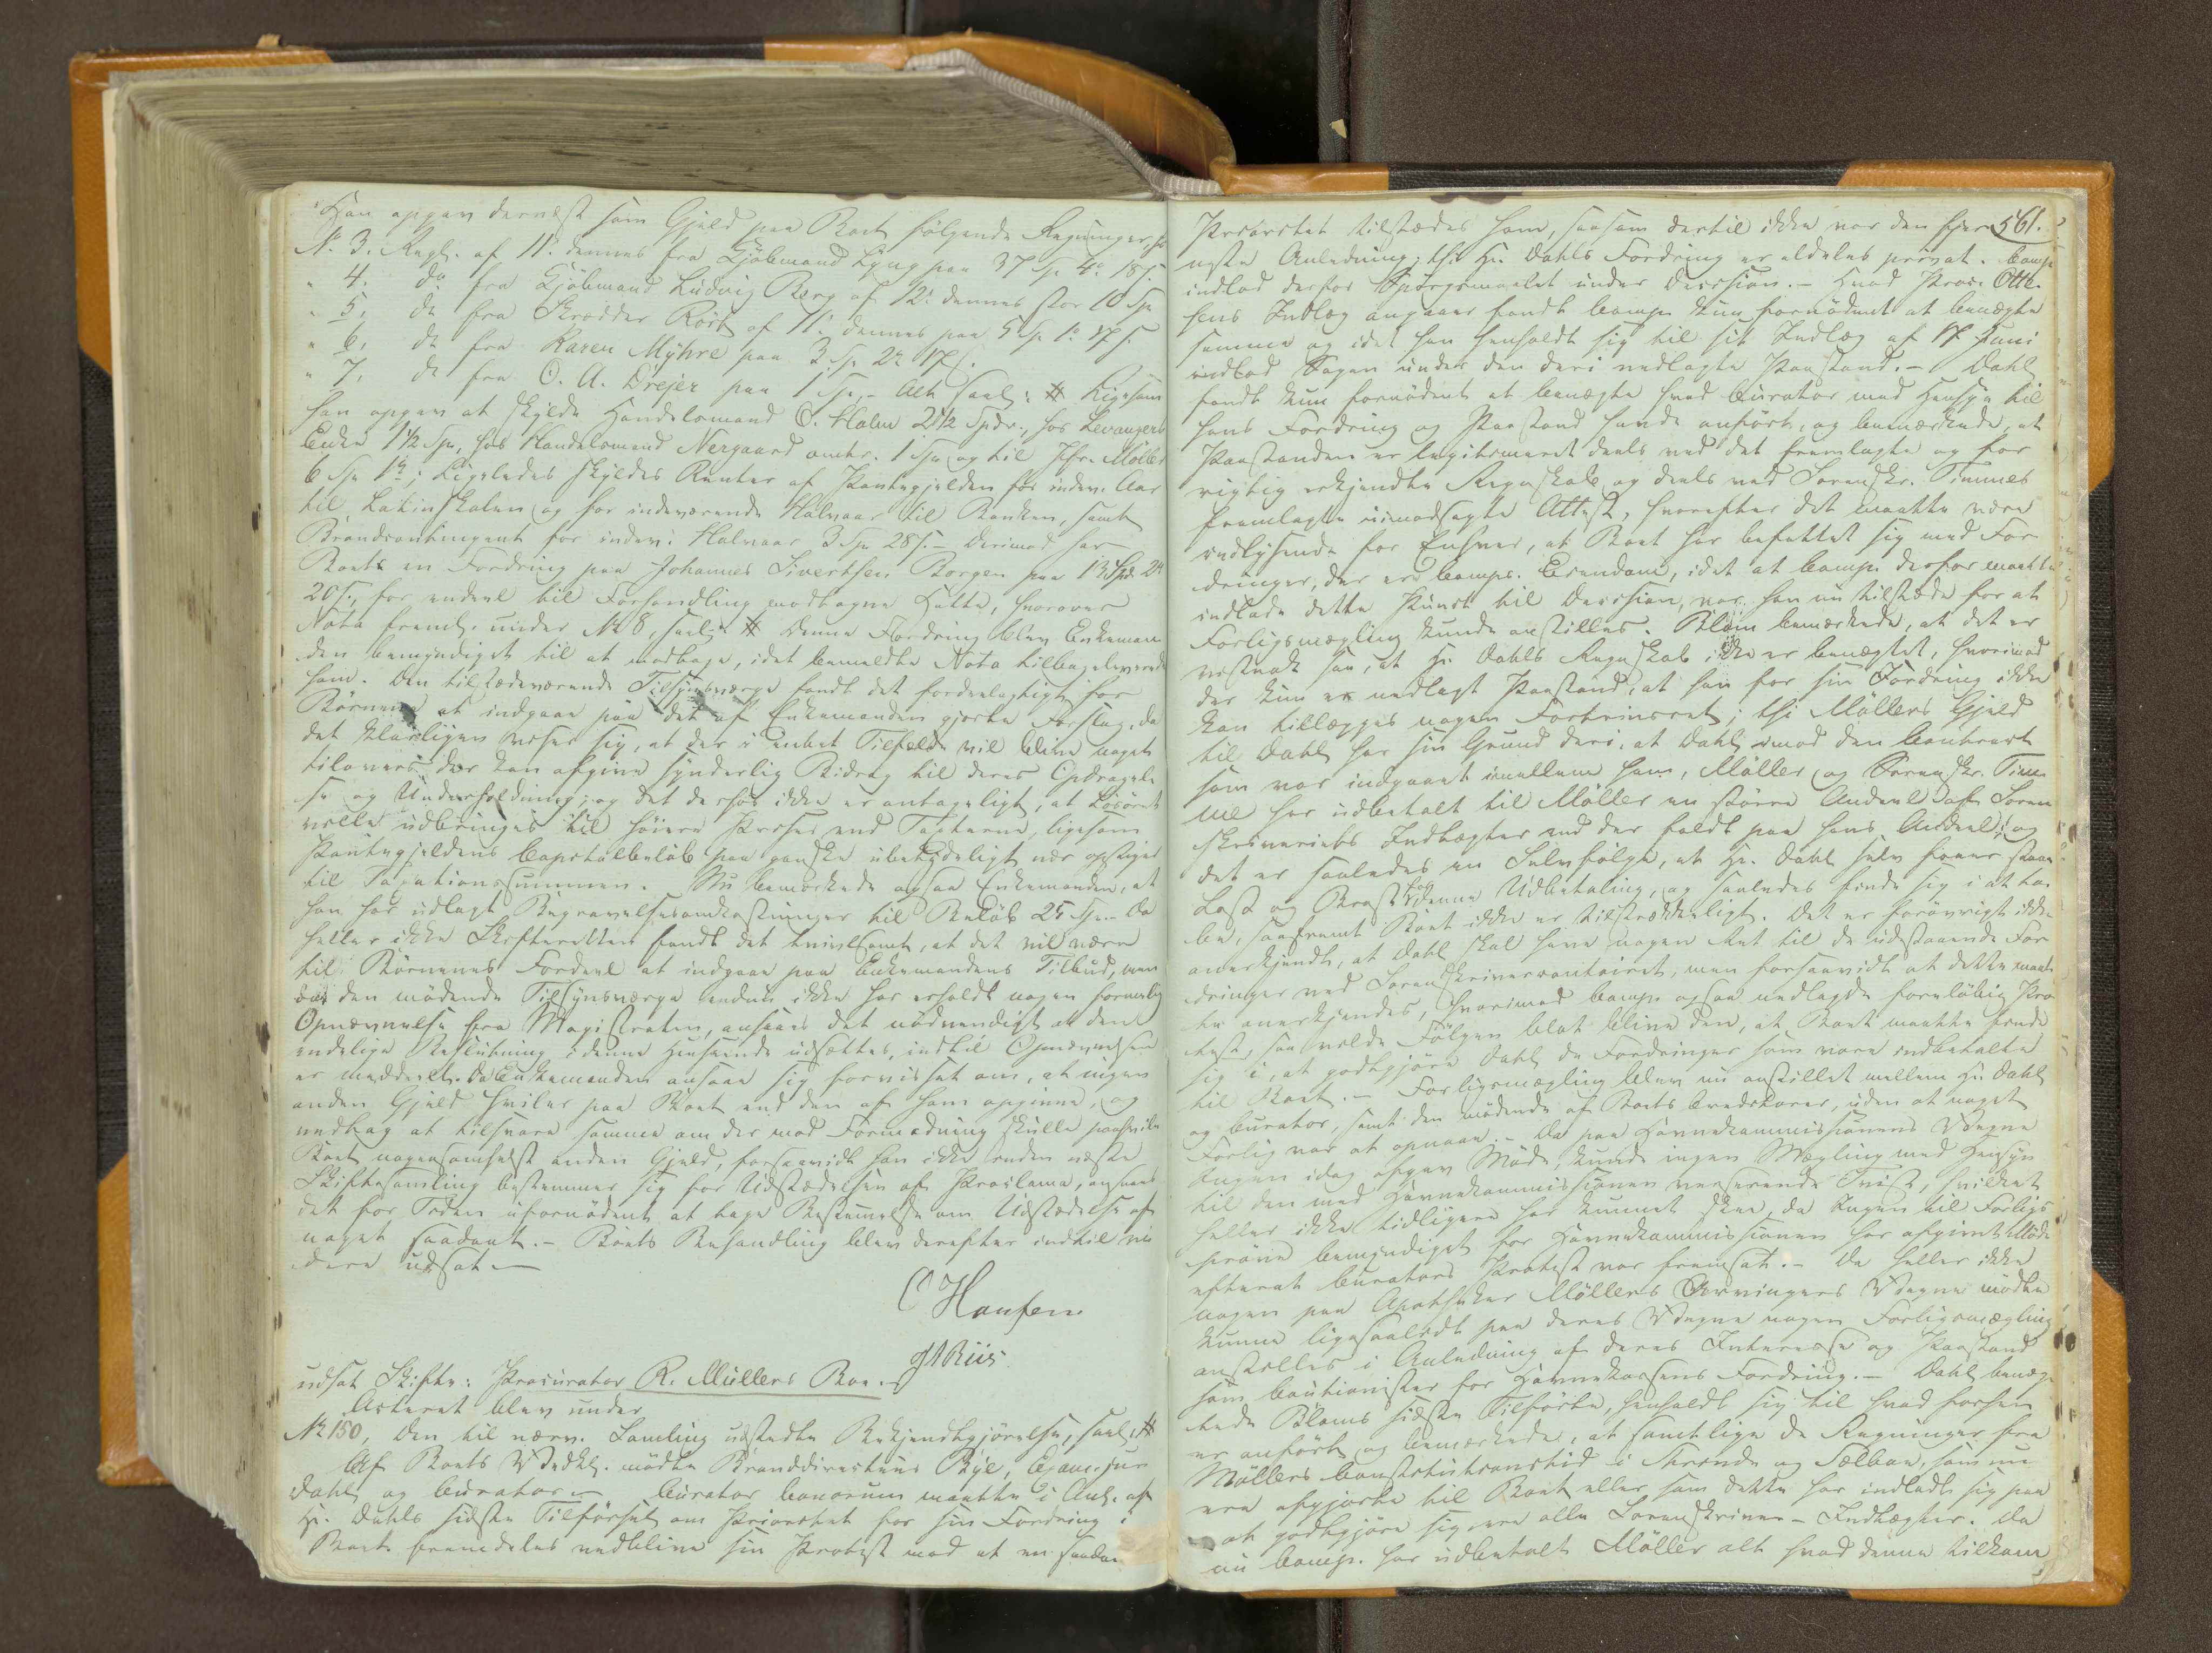 Han opgav dernæst som Gjeld paa Boet følgende Regninger, fr
No 3. Regn. af 11. dennes fra Kjöbmand Lyng paa 37 Sp 4 ort 18 s.
" 4. do fra Kjöbmand Ludvig Berg af 12. dennes stor 10 Sp
" 5. do fra Skrædder Rörb af 11. dennes paa 5 Sp 1 ort 17 s.
" 6. do fra Karen Myhre paa 3 Sp 2 ort 17 s.
" 7. do fra O. A. Drejer paa 1 Sp. – Alt saal: # Ligesom
han opgav at skylde Handelsmand O. Holm 2 1/2 Spdr., hos Levangers
Enke 1 1/2 Sp, hos Handelsmand Nergaard omtr. 1 Sp og til Jfr. Möller
6 Sp 1 ort; Ligeledes skyldes Renter af Pantegjelden for indev. Aar
til Latinskolen og for indeværende Halvaar til Banken, samt
Brandcontingent for indev. Halvaar 3 Sp 28 s. – Derimod har
Boet en Fordring paa Johannes Sivertsen Borgen paa 13 Spd 2 ort
20 s., for endeel til Forhandling modtagne Hatte, hvorover
Nota freml. under No 8, saal: # Denne Fordring blev Enkeman
den bemyndiget til at modtage, idet bemeldte Nota tilbageleveredes
ham. Den tilstedeværende Tilsynsværge fandt det fordeelagtigt for
Børnene at indgaae paa det af Enkemanden gjorte Forslag, da
det klarligen viser sig, at der i intet Tilfælde vil blive noget
tilovers der kan afgive synderlig Bidrag til deres Opdragel-
se og Underholdning; og det derhos ikke er antageligt, at Lösöret
ville udbringes til høiere Priser end Taxterne, ligesom
Pantegjeldens Capitalbeløb paa ganske ubetydeligt nær opstiger
til Taxationssummen. Nu bemærkede ogsaa Enkemanden, at
han har udlagt Begravelsesomkostninger til Beløb 25 Sp. – Da
heller ikke Skifteretten fandt det tvivlsomt, at det vil være
til Børnenes Fordeel at indgaae paa Enkemandens Tilbud, men
da den mødende Tilsynsværge endnu ikke har erholdt nogen formelig
Opnævnelse fra Magistraten, ansaaes det nødvendigt at den
endelige Beslutning i denne Henseende udsættes, indtil Opnævnelsen
er meddeelt. Da Enkemanden ansaae sig forvisset om, at ingen
anden Gjeld hviler paa Boet end den af ham opgivne, og
vedtog at tilsvare samme om der mod Formodning skulle paahvile
Boet nogensomhelst anden Gjeld, forsaavidt han ikke inden næste
Skiftesamling bestemmer sig for Udstædelsen af Proclama, ansaaes
det for Tiden ufornødent at tage Bestemmelse om Udstædelse af
noget saadant. – Boets Behandling blev derefter indtil vi
dere udsat. –
C Hansen
J N Riis
udsat Skifte: Procurator R. Müllers Boe. –
Acteret blev under
No 150, den til nærv. Samling udstedte Bekjendtgjørelse, saal: #
Af Boets Vedk. mødte Branddirecteur Bye, Examinir
Dahl og Curator. – Curator bonorum maatte i Anl. af
Hr. Dahls sidste Tilførsel om Prioritet for sin Fordring i
Boet fremdeles vedblive sin Protest mod at en saadan
561.
Prioritet tilstædes ham, saasom dertil ikke var den fjer
neste Anledning; thi Hr. Dahls Fordring er aldeles privat. Comp
indlod derfor Spörgsmaalet under Decision. – Hvad Proc. Otte-
sens Indlæg angaaer fandt Comp. kun fornødent at benægte
samme og idet han henholdt sig til sit Indlæg af 17 Juni
indlod Sagen under den deri nedlagte Paastand. – Dahl
fandt kun fornødent at benægte hvad Curator med Hensyn til
hans Fordring og Paastand havde anført, og bemærkede, at
Paastanden er legitimeret deels ved det fremlagte og for
rigtig erkjendte Regnskab og deels ved Sorenskr. Timmes
fremlagte uimodsagte Attest, hvorefter det maatte være
indlysende for Enhver, at Boet har befattet sig med For
dringer, der ere Comps. Eiendom, idet at Comp. derfor maatte
indlade dette Punct til Decision, var han nu tilstede for at
Forligsmægling kunde anstilles. Blom bemærkede, at det er
vistnok saa, at Hr. Dahls Regnskab ikke er benægtet, hvorimod
der kun er nedlagt Paastand, at han for sin Fordring ikke
kan tillægges nogen Fortrinsret; thi Möllers Gjeld
til Dahl har sin Grund deri, at Dahl imod den Contract
som var indgaaet imellem ham, Möller og Sorenskr. Tim
me har udbetalt til Möller en större Andeel af Soren
skriveriets Indtægter end der faldt paa hans Andeel; og
det er saaledes en Selvfølge, at Hr. Dahl selv faaer staae
Last og Brøst for denne Udbetaling, og saaledes finde sig i at ta
be, saafremt Boet ikke er tilstrækkeligt. Det er forövrigt ikke
anerkjendt, at Dahl skal have nogen Ret til de udestaaende For
dringer ved Sorenskrivercontoiret, men forsaavidt at dette maat
te anerkjendes, hvorimod Comp. ogsaa nedlagde foreløbig Pro
test, saa vilde Følgen blot blive den, at Boet maatte finde
sig i, at godtgjøre Dahl de Fordringer som vare indbetalte
til Boet. – Forligsmægling blev nu anstillet mellem Hr. Dahl
og Curator, samt den mødende af Boets Creditorer, uden at noget
Forlig var at opnaae. – Da paa Havnekommissionens Vegne
Ingen idag afgav Møde, kunde ingen Mægling med Hensyn
til den med Havnekommissionen verserende Tvist, hvilket
heller ikke tidligere har kunnet skee, da Ingen til Forligs
prøve bemyndiget for Havnekommissionen har afgivet Møde
efterat Curators Protest var fremsat. – Da heller ikke
nogen paa Apotheker Möllers Arvingers Vegne mødte
kunne ligesaalidt paa deres Vegne nogen Forligsmægling
anstilles i Anledning af deres Interesse og Paastand
som Cautionister for Havnekassens Fordring. – Dahl benæg-
tede Bloms sidste Tilførte, henholdt sig til hvad forhen
er anført og bemærkede, at samtlige de Regninger fra
Möllers Constitutionstid i Strinde og Sælboe, som nu
ere afgjorte til Boet eller som dette har indladt sig paa
at godtgjøre sig ere alle Sorenskriver-Indtægter. Da
nu Comp. har udbetalt Möller alt hvad denne tilkom